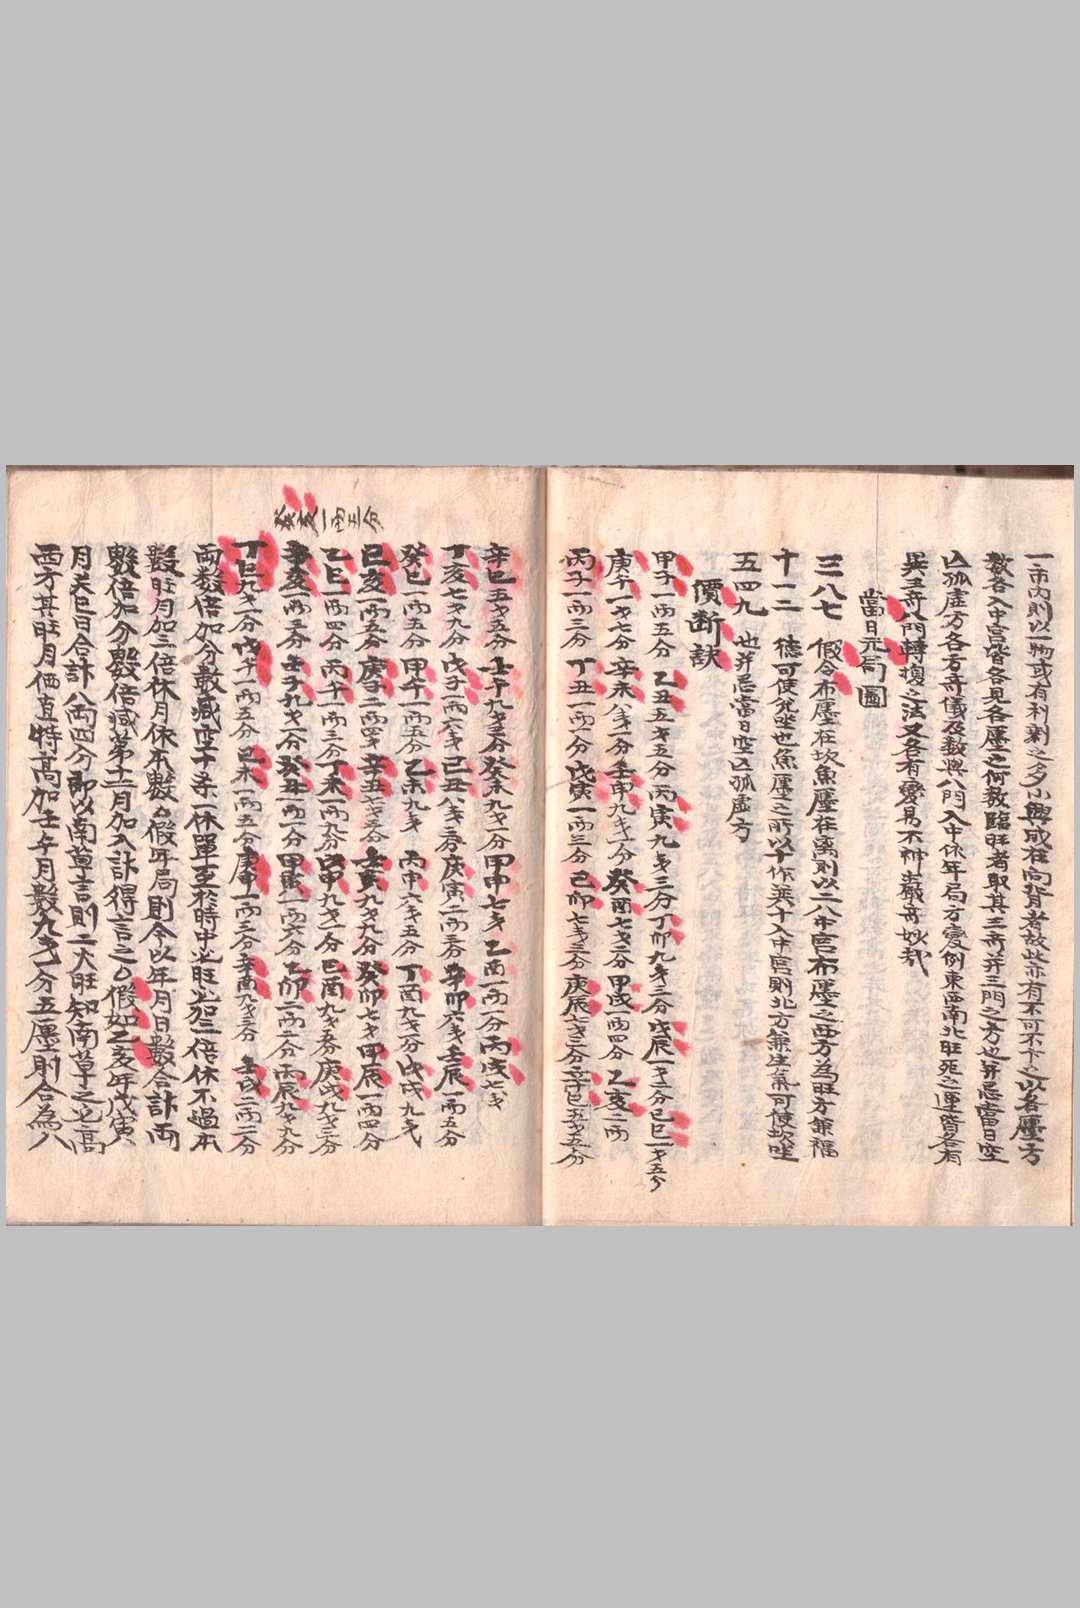 一市內則以一物或有利剥之夕小興成在向背者故此亦有不可不卞之以各廛方
數各入中宮皆各見各廛之何數臨旺者取其三奇并三門之方也并忌當日空
亾孤虛方各方奇儀及數與八門入中休年局方变例東西南北旺死之運皆各有
異三奇八門轉換之法又各有變易不神嚴奇妙哉
當日元局圖
三八七 假令布廛在坎魚廛在离則以二八中宮布廛之每方為旺方兼福
十一二 德可使兌坐也魚廛之所以十作英十入中宮則北方兼生氣可使坎坐
五四九 也并忌當日空亾孤虛方
價断訣
甲子一兩五分 乙丑五才五分 丙寅九才三分 丁卯九才二分 戊辰一才六分 己巳一才五分
庚午一才七分 辛未八才一分 壬申九才一分 癸酉七才二分 甲戌一兩四分 乙亥二兩
丙子一兩三分 丁丑一兩一分 戊寅一兩三分 己卯七才二分 庚辰七才三分
辛巳五才五分 壬午九才三分 癸未九才一分 甲申七才 乙酉一兩一分 丙戌七才
丁亥七才九分 戊子一兩六才 己丑八才三分 庚寅一兩三分 辛卯六才 壬辰一兩五分
癸巳一兩五分 甲午一兩五分 乙未九才 丙申六才五分 丁酉九才分 戊戌九才
己亥一兩五分 庚子二兩四才 辛丑七才三分 壬寅九才九分 癸卯七才 甲辰一兩四分
乙巳一兩四分 丙午一兩三分 丁未一兩九分 戊申九才一分 己酉九才五分 庚戌九才三分
癸亥一兩三分
辛亥一兩三分 壬子九才一分 癸丑一兩一分 甲寅一兩六分 乙卯二兩二分 丙辰九才九分
丁巳九才一分 戊午一兩五分 己未一兩五分 庚申一兩三分 辛酉九才三分 壬戌二兩二分
兩数倍加分數減空十条一休單至於時中此旺此加三倍休不過本
數旺月加三倍休月休本數 假年局則令以年月日數合計兩
數倍加分數倍減第十二月加入計得言之 假如乙亥年戊寅
月癸巳日合計八兩四分即以南草言則二火旺知南草之此高
西方其旺月価直特高加壬午月數九才一分五廛則合為八